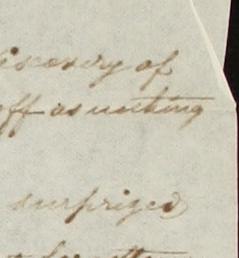 discovery of
off as nothing
surprized